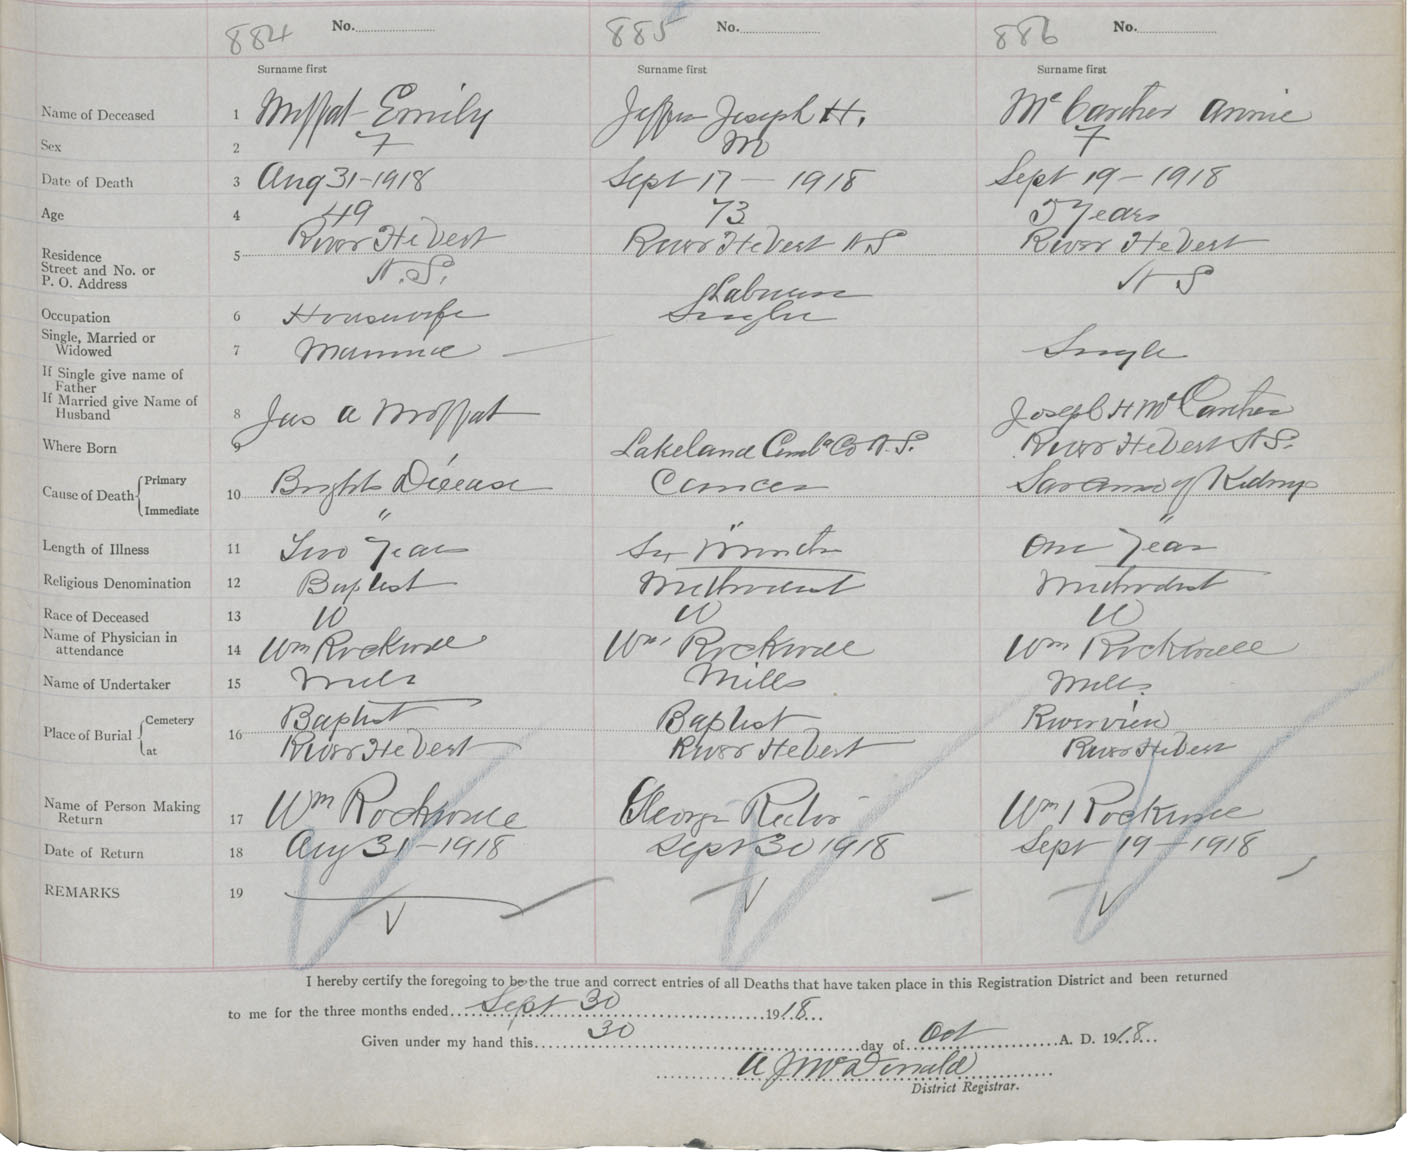 884 No. 885 No. 886 No.
Surname first Surname first Surname first
Name of Deceased 1 Moffat Emily Joseph H. McCarther Annie
Sex 2 F M F
Date of Death 3 Aug 31-1918 Sept 17 - 1918 Sept 19 - 1918
Age 4 49 73 5 Years
Residence Street and No. or P. O. Address 5 River Hebert River Hebert N S River Hebert
N.S. N S
Labourer
Occupation 6 Housewife Single
Single, Married or Widowed 7 Married Single
If Single give name of Father
If Married give Name of Husband 8 Jas A Moffat Joseph H McCarther
Where Born 9 Lakeland Cumb Co N.S. River Hebert N S.
Cause of Death Primary 10 Brights Disease Cancer Sarcoma of Kidneys
Immediate " " "
Length of Illness 11 Two Years Six Months One Year
Religious Denomination 12 Baptist Methodist Methodist
Race of Deceased 13 W W W
Name of Physician in attendance 14 Wm Rockwell Wm Rockwell Wm Rockwell
Name of Undertaker 15 Mills Mills Mills
Place of Burial Cemetery 16 Baptist Baptist Riverview
at River Hebert River Hebert River Hebert
Name of Person Making Return 17 Wm Rockwell George Rector Wm Rockwell
Date of Return 18 Aug 31-1918 Sept 30 1918 Sept 19-1918
REMARKS 19
I hereby certify the foregoing to be the true and correct entries of all Deaths that have taken place in this Registration District and been returned
to me for the three months ended Sept 30 1918
Given under my hand this 30 day of Oct A. D. 1918
A J McDonald
District Registrar.